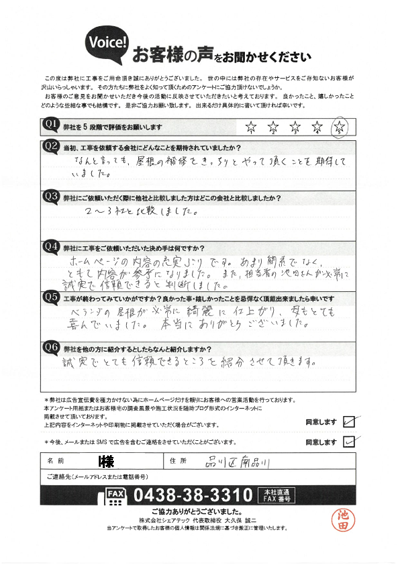 Voice!
お客様の声をお聞かせください
この度は弊社に工事をご用命頂き誠にありがとうございました。世の中には弊社の存在やサービスをご存知ないお客様が
沢山いらっしゃいます。その方たちに弊社をよく知って頂くためのアンケートにご協力頂けないでしょうか。
お客様のご意見をお聞かせいただき今後の活動に反映させていただきたいと考えております。良かったこと、嬉しかったこと
どのような些細な事でも結構です。是非ご協力お願い致します。出来るだけ具体的に書いて頂ければ幸いです。
Q1 弊社を5段階で評価をお願いします
Q2 当初、工事を依頼する会社にどんなことを期待されていましたか?
なんと言っても、屋根の補修をきっちりとやって頂くことを期待して
いました。
Q3 弊社にご依頼いただく際に他社と比較しました方はどこの会社と比較しましたか?
2〜3社と比較しました。
Q4 弊社に工事をご依頼いただいた決め手は何ですか?
ホームページの内容の充実ぶりです。あまり類系でなく、
とても内容が参考になりました。また、担当者の池田さんが非常に
誠実で信頼できると判断しました。
Q5 工事が終わってみていかがですか?良かった事・嬉しかったことを忌憚なく頂戴出来ましたら幸いです
ベランダの屋根が非常に綺麗に仕上がり、母もとても
喜んでいました。本当にありがとうございました。
Q6 弊社を他の方に紹介するとしたらなんと紹介しますか?
誠実でとても信頼できるところと紹介させて頂きます。
*弊社は広告宣伝費を極力かけない為にホームページだけを頼りにお客様への営業活動を行っております。
本アンケート用紙またはお客様宅の調査風景や施工状況を随時ブログ形式のインターネットに
掲載させて頂いております。
上記内容をインターネットや印刷物に掲載させていただく場合がございます。
同意します
*今後、メールまたはSMSで広告を含むご連絡をさせていただくことがございます。
同意します
名前 I様 住所 品川区南品川
ご連絡先(メールアドレスまたは電話番号)
FAX 0438-38-3310 本社直通 FAX番号
ご協力ありがとうございました。
株式会社シェアテック 代表取締役 大久保 誠二
当アンケートで取得したお客様の個人情報は関係法規に基づき厳正に管理いたします。
池田